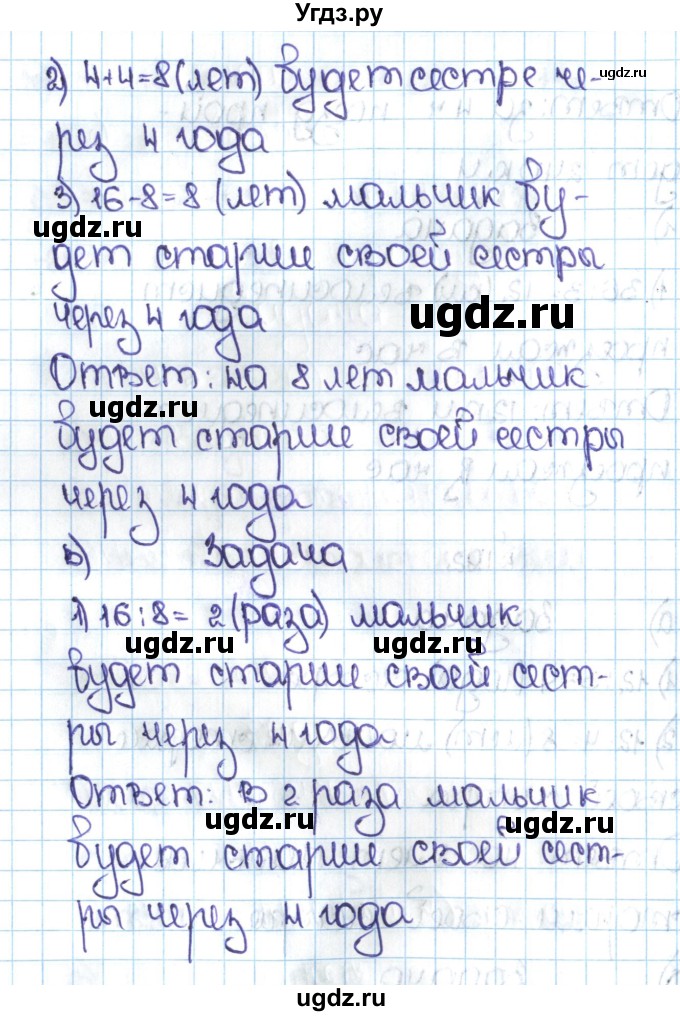 Угдз.ру
2) 4+4=8 (лет) будет сестре че-
ugdz.ru
рез 4 года
3) 16-8=8 (лет) мальчик бу-
ugdz.ru
дет старше своей сестры
через 4 года
ugdz.ru
Ответ: на 8 лет мальчик
ugdz.ru
будет старше своей сестры
через 4 года
в) Задача
1) 16:8= 2 (раза) мальчик
ugdz.ru ugdz.ru
будет старше своей сест-
ры через 4 года
Ответ: в 2 раза мальчик
ugdz.ru ugdz.ru
будет старше своей сест-
ры через 4 года
ugdz.ru